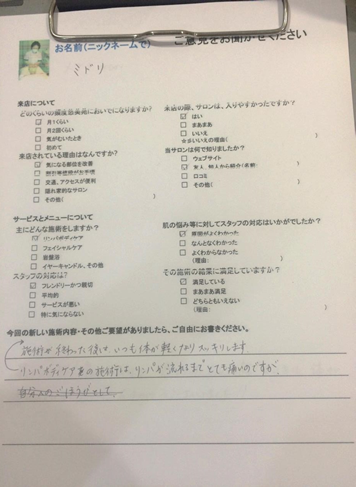 お名前(ニックネームで)
ご意見をお聞かせください
ミドリ
来店について
どのくらいの頻度でおいでになりますか?
月1くらい
月2回くらい
気がむいたとき
初めて
来店されている理由はなんですか?
気になる部位を改善
交通、アクセスが便利
隠れ家的なサロン
その他(
)
来店の際、サロンは、入りやすかったですか?
はい
まあまあ
いいえ
※多いいえの理由(
)
当サロンは何で知りましたか?
ウェブサイト
友人、知人から紹介(名前:
)
口コミ
その他(
)
サービスとメニューについて
主にどんな施術をしますか?
リンパボディケア
フェイシャルケア
岩盤浴
イヤーキャンドル、その他
スタッフの対応は?
フレンドリーかつ親切
平均的
サービスが悪い
特に気にならない
肌の悩み等に対してスタッフの対応はいかがでしたか?
原因がよくわかった
なんとなくわかった
よくわからなかった
(理由:
)
その施術の結果に満足していますか?
満足している
まあまあ満足
どちらともいえない
(理由
)
今回の新しい施術内容・その他ご要望がありましたら、ご自由にお書きください。
施術が終わった後は、いつも体が軽くなりスッキリします
リンパボディケアの施術は、リンパが流れるまでとても痛いのですが、
自分へのごほうびとして、